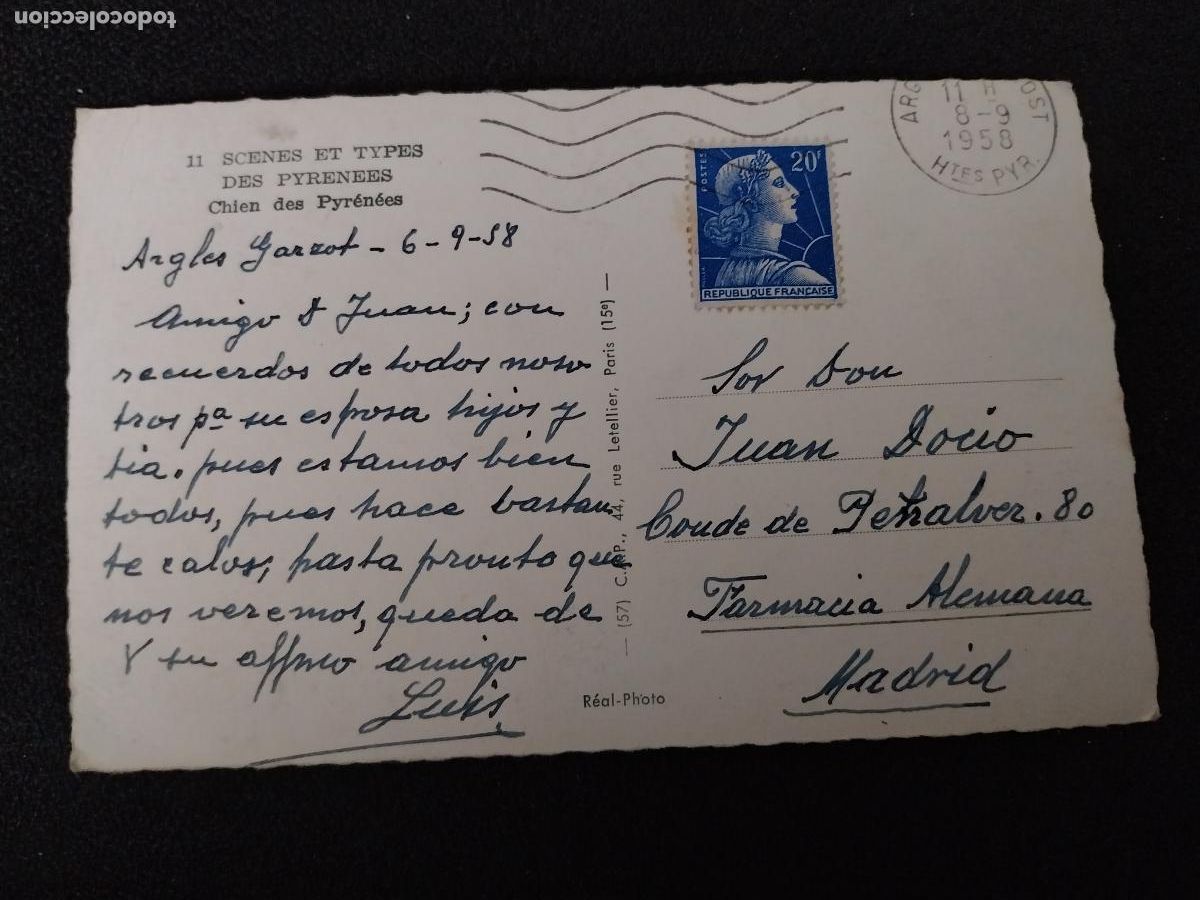 todocoleccion
11 SCENES ET TYPES
DES PYRENEES
Chien des Pyrénées
Argles Gazzot - 6-9-58
Amigo D Juan; con
recuerdos de todos noso
tros pª su esposa hijos y
tia. pues estamos bien
todos, pues hace bastan
te calos, hasta pronto que
nos veremos, queda de
V su affmo amigo
Luis
— (57) C.A.P., 44, rue Letellier, Paris (15e) —
Réal-Photo
POSTES
20F
MULLER
REPUBLIQUE FRANÇAISE
ARG OST
11 H
8-9
1958
HTES PYR.
Sor Don
Juan Docio
Conde de Peñalver. 80
Farmacia Alemana
Madrid